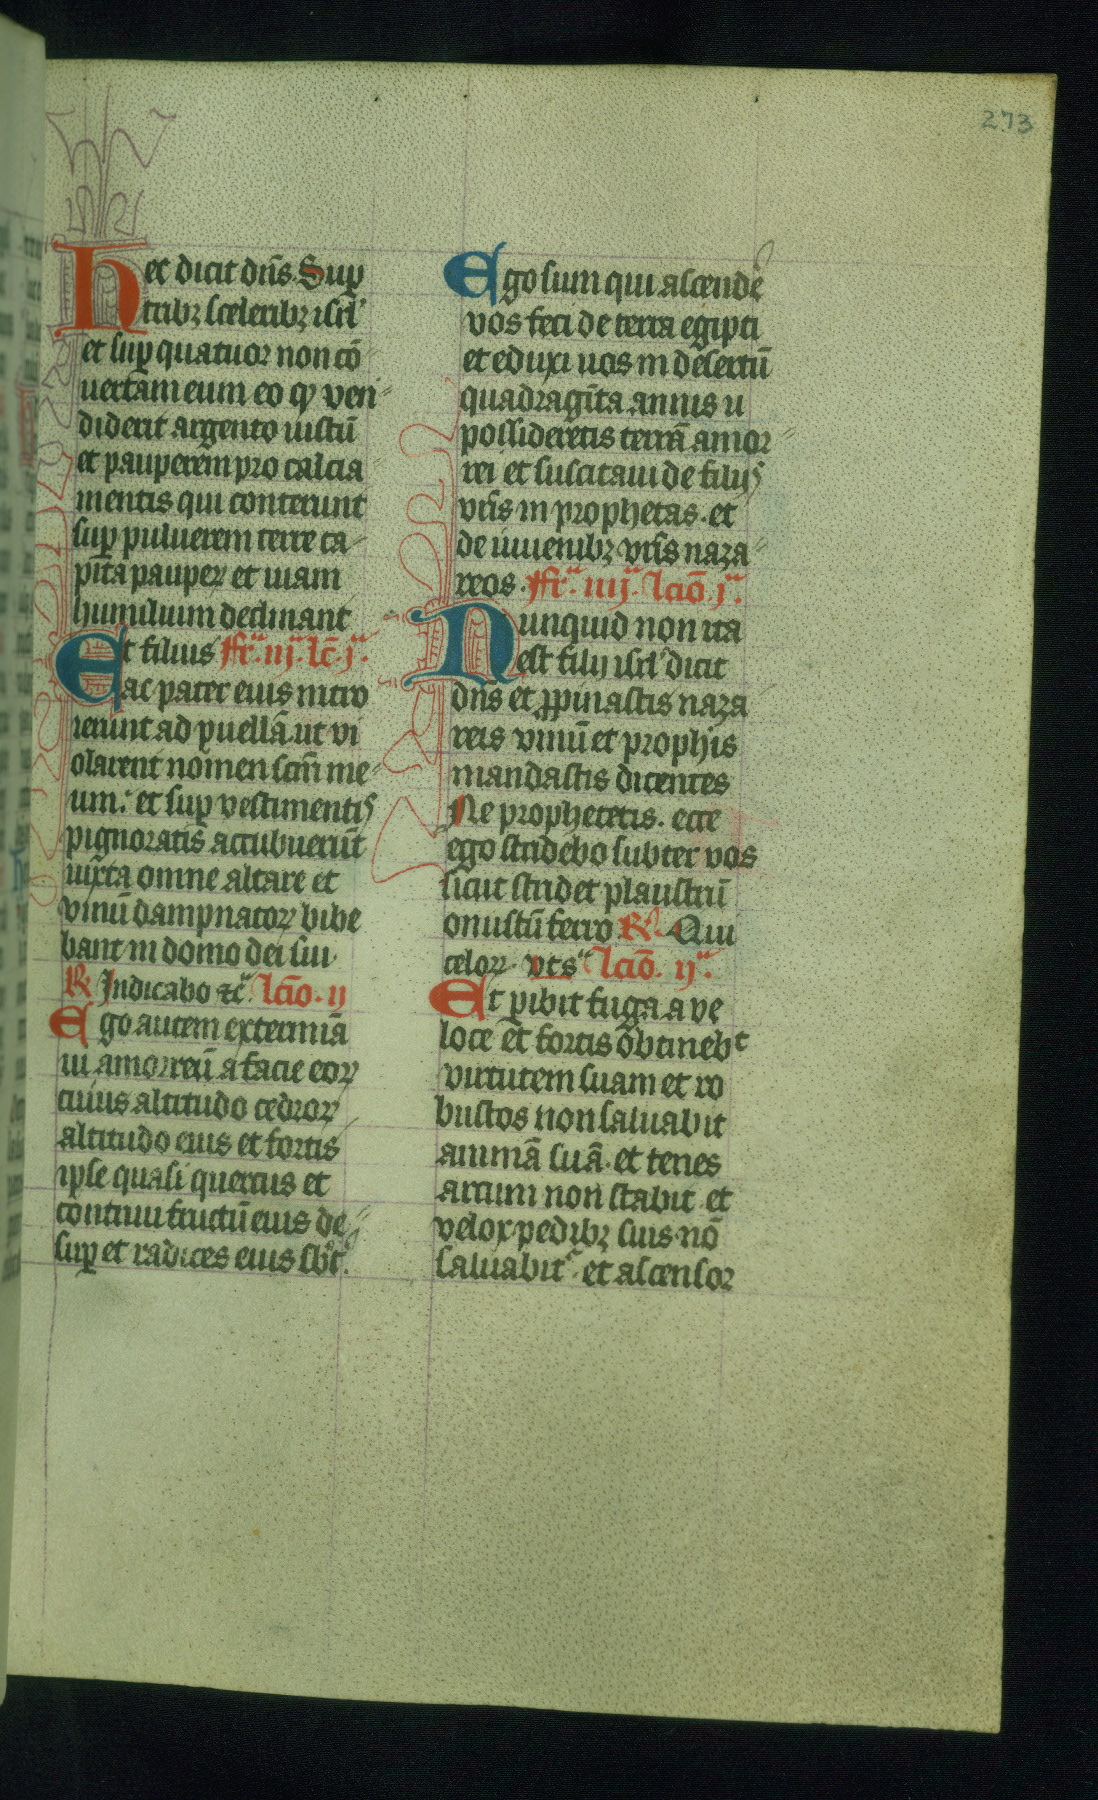 273
Hec dicit dn̄s. Sup̲
tribꝫ sceleribꝫ isrl̓
et sup̲ quatuor non cō
uertam eum eo qꝫ ven
diderit argento iustū
et pauperem pro calcia
mentis qui conterunt
sup̲ puluerem terre ca
pita pauperꝝ et uiam
humilium declinant
Et filius ffr̄.iij. lc̄.j.
ac pater eius intro
ierunt ad puellā. ut vi
olarent nomen scm̄ me
um: et sup̲ vestimentis
pignoratis accubuerūt
iuxta omne altare et
vinū dampnatorꝝ bibe
bant in domo dei sui.
R. Indicabo ⁊c̄. lcīo. ij
Ego autem extermīa
ui amorreū a facie eorꝝ
cuius altitudo cedrorꝝ
altitudo eius et fortis
ipse quasi quercus et
contriui fructū eius de
sup̲ et radices eius sbt̓.
Ego sum qui ascende
vos feci de terra egipti
et eduxi uos in desertū
quadragīta annis u
possideretis terrā amor
rei et suscitaui de filijs
vrīs in prophetas. et
de iuuenibꝫ vrīs naza
reos. ffr̄. iiij. lcīo. j.
Nunquid non ita
est filij isrl̓ dicit
dn̄s et ꝓpinastis naza
reis vinū et prophīs
mandastis dicentes
Ne prophetetis. ecce
ego stridebo subter vos
sicut stridet plaustrū
onustū ferro. R. Qui
celorꝝ. vts̄ lcīo. ij.
Et pibit fuga a ve
loce et fortis obtinebt
virtutem suam et ro
bustos non saluabit
animā suā. et tenes
arcum non stabit. et
velox pedibꝫ suis nō
saluabit̓. et ascensor